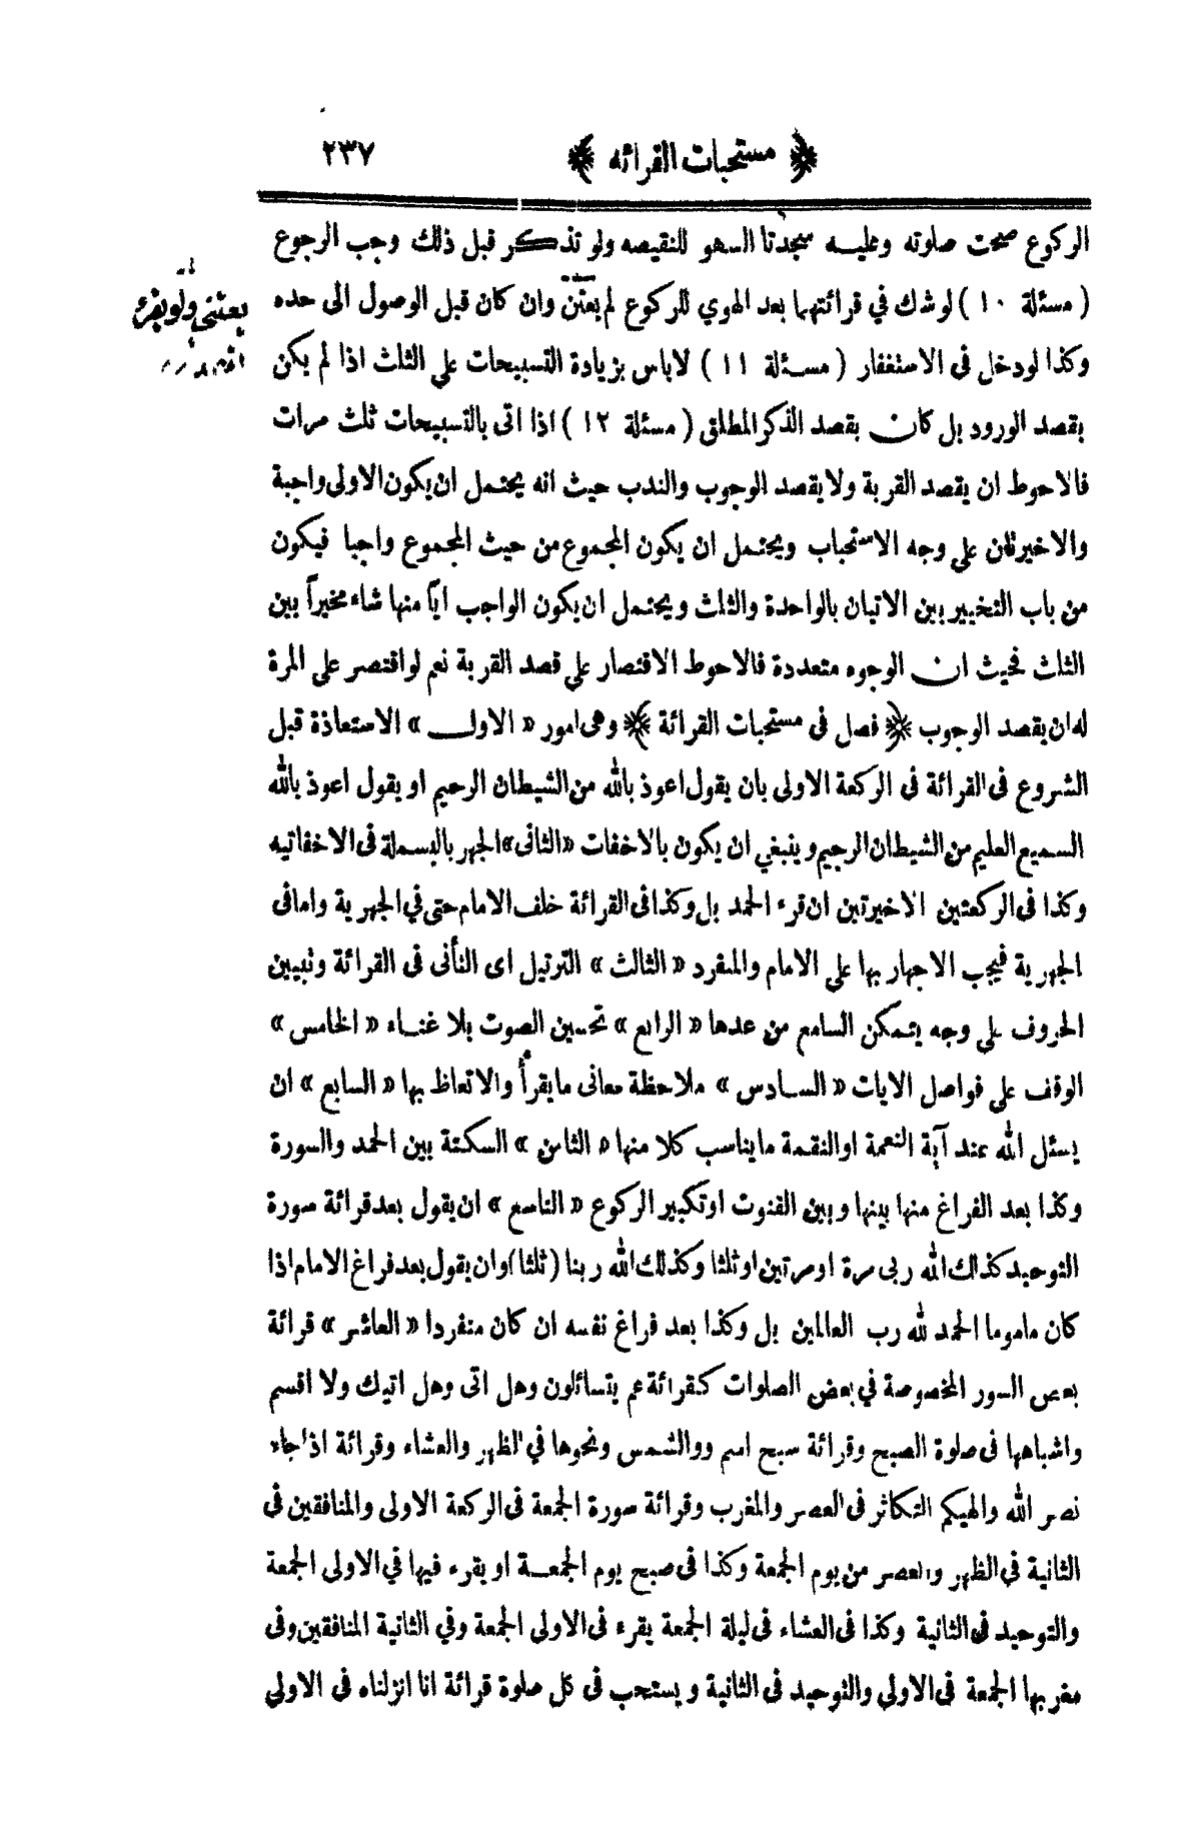 ﴿ مستحبات القرائه ﴾ ٢٣٧
الركوع صحت صلوته وعليه سجدتا السهو للنقيصه ولو تذكر قبل ذلك وجب الرجوع
( مسئلة ١٠ ) لو شك في قرائتهما بعد الهوي للركوع لم يعتن وان كان قبل الوصول الى حده
وكذا لو دخل فى الاستغفار ( مسئلة ١١ ) لاباس بزيادة التسبيحات علي الثلث اذا لم يكن
بقصد الورود بل كان بقصد الذكر المطلق ( مسئلة ١٢ ) اذا اتى بالتسبيحات ثلث مرات
فالاحوط ان يقصد القربة ولا يقصد الوجوب والندب حيث انه يحتمل ان يكون الاولى واجبة
والاخيرتان علي وجه الاستحباب ويحتمل ان يكون المجموع من حيث المجموع واجبا فيكون
من باب التخيير بين الاتيان بالواحدة والثلث ويحتمل ان يكون الواجب اياً منها شاء مخيراً بين
الثلث فحيث ان الوجوه متعددة فالاحوط الاقتصار علي قصد القربة نعم لو اقتصر على المرة
له ان يقصد الوجوب ﴿ فصل فى مستحبات القرائة ﴾ وهى امور « الاول » الاستعاذة قبل
الشروع فى القرائة فى الركعة الاولى بان يقول اعوذ بالله من الشيطان الرجيم او يقول اعوذ بالله
السميع العليم من الشيطان الرجيم وينبغي ان يكون بالاخفات «الثانى» الجهر بالبسملة فى الاخفاتيه
وكذا فى الركعتين الاخيرتين ان قرء الحمد بل وكذا فى القرائة خلف الامام حتى في الجهرية واما فى
الجهرية فيجب الاجهار بها علي الامام والمنفرد « الثالث » الترتيل اى التأنى فى القرائة وتبيين
الحروف علي وجه يتمكن السامع من عدها « الرابع » تحسين الصوت بلا غناء « الخامس »
الوقف على فواصل الايات « السادس » ملاحظة معانى ما يقرأ والاتعاظ بها « السابع » ان
يسئل الله عند آية النعمة او النقمة ما يناسب كلا منها « الثامن » السكتة بين الحمد والسورة
وكذا بعد الفراغ منها بينها وبين القنوت او تكبير الركوع « التاسع » ان يقول بعد قرائة سورة
التوحيد كذلك الله ربى مرة او مرتين او ثلثا وكذلك الله ربنا (ثلثا) وان يقول بعد فراغ الامام اذا
كان ماموما الحمد لله رب العالمين بل وكذا بعد فراغ نفسه ان كان منفردا « العاشر » قرائة
بعض السور المخصوصة في بعض الصلوات كقرائة عم يتسائلون وهل اتى وهل اتيك ولا اقسم
واشباهها فى صلوة الصبح وقرائة سبح اسم ووالشمس ونحوها في الظهر والعشاء وقرائة اذا جاء
نصر الله والهيكم التكاثر فى العصر والمغرب وقرائة سورة الجمعة فى الركعة الاولى والمنافقين فى
الثانية في الظهر والعصر من يوم الجمعة وكذا فى صبح يوم الجمعة او يقرء فيها في الاولى الجمعة
والتوحيد فى الثانية وكذا فى العشاء فى ليلة الجمعة يقرء فى الاولى الجمعة وفي الثانية المنافقين وفى
مغربها الجمعة فى الاولى والتوحيد فى الثانية ويستحب فى كل صلوة قرائة انا انزلناه فى الاولى
يعتنى ولو بقرء